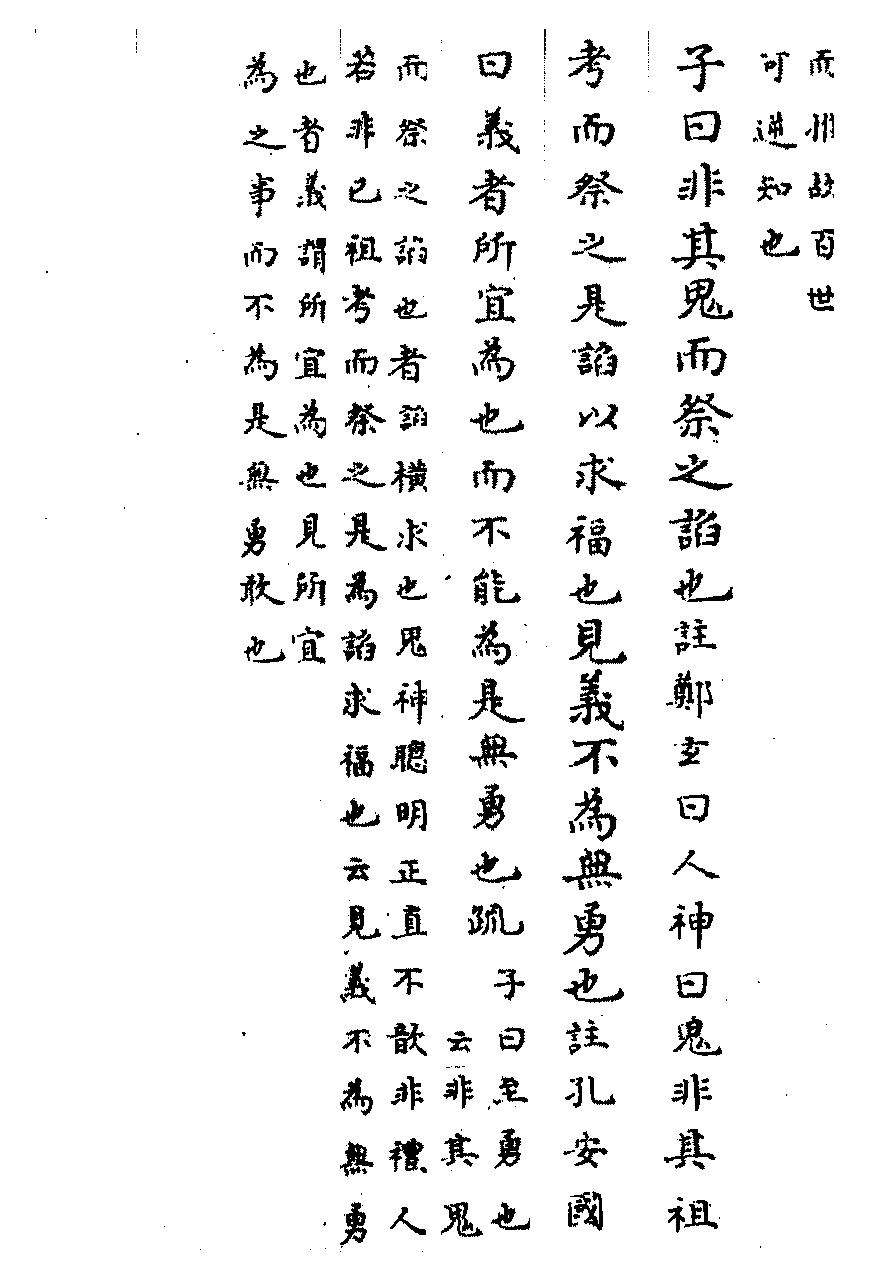 而故百世
可逆知也
子曰非其鬼而祭之諂也註鄭玄曰人神曰鬼非其祖
考而祭之是諂以求福也見義不為無勇也註孔安國
曰義者所宜為也而不能為是無勇也疏
子曰至勇也
云非其鬼
而祭之諂也者諂横求也鬼神聰明正直不歆非禮人
若非己祖考而祭之是為諂求福也云見義不為無勇
也者義謂所宜為也見所宜
為之事而不為是無勇敢也